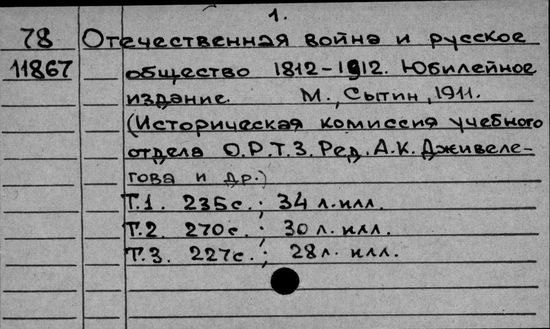 1.
78 Отечественная война и русское
11867 общество 1812-1912. Юбилейное
издание. М., Сытин, 1911.
(Историческая комиссия учебного
отдела О.Р.Т.З. Ред. А.К. Дживеле-
гова и др.)
Т.1. 235с.; 34 л. илл.
Т.2. 270с.; 30 л. илл.
Т.3. 227с.; 28 л. илл.